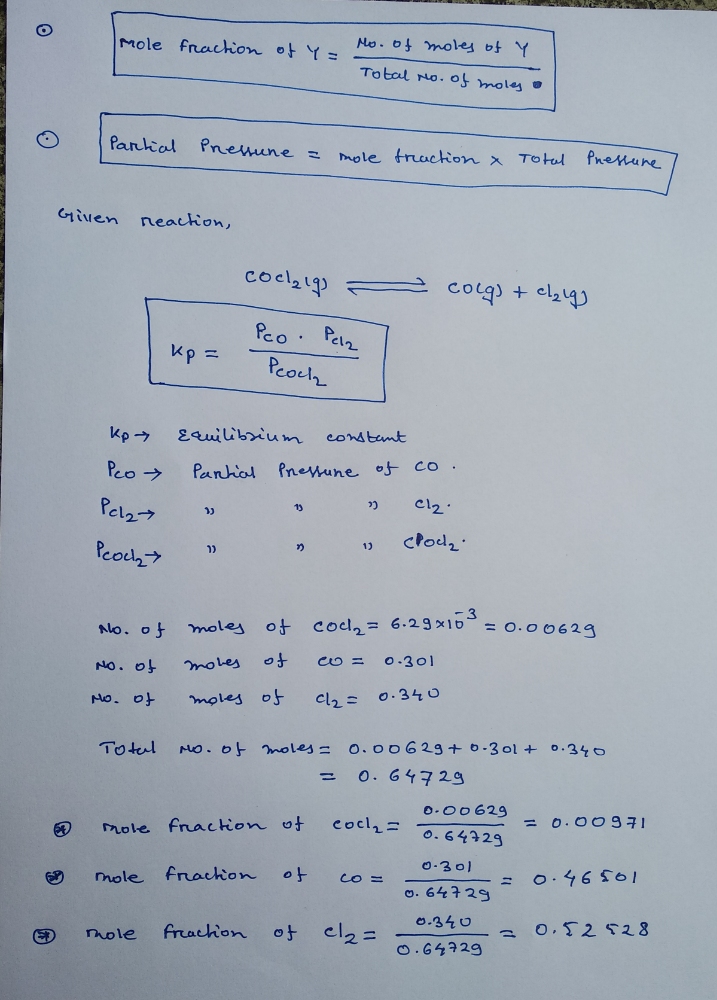 Mole fraction of Y = No. of moles of Y / Total No. of moles
Partial Pressure = mole fraction × Total Pressure
Given reaction,
COCl₂(g) ⇌ CO(g) + Cl₂(g)
Kp = P_CO · P_Cl₂ / P_COCl₂
Kp → Equilibrium constant
P_CO → Partial Pressure of CO.
P_Cl₂ → " " " Cl₂.
P_COCl₂ → " " " COCl₂.
No. of moles of COCl₂ = 6.29×10⁻³ = 0.00629
No. of moles of CO = 0.301
No. of moles of Cl₂ = 0.340
Total No. of moles = 0.00629 + 0.301 + 0.340
= 0.64729
mole fraction of COCl₂ = 0.00629 / 0.64729 = 0.00971
mole fraction of CO = 0.301 / 0.64729 = 0.46501
mole fraction of Cl₂ = 0.340 / 0.64729 = 0.52528